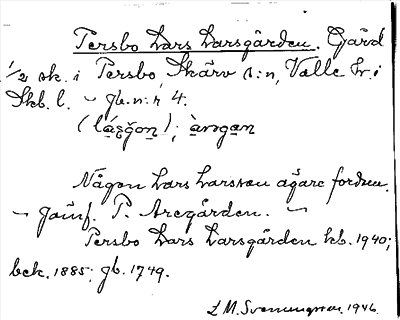 Persbo Lars Larsgården. Gård
1/2 sk. i Persbo, Skärv s:n, Valle hr. i
Skb. l. – gb. n:r 4.
Någon Lars Larsson ägare fordom.
– Jämf. P. Aregården. –
Persbo Lars Larsgården kb. 1940;
bek. 1885; gb. 1749.
L M. Svenungsson. 1946.